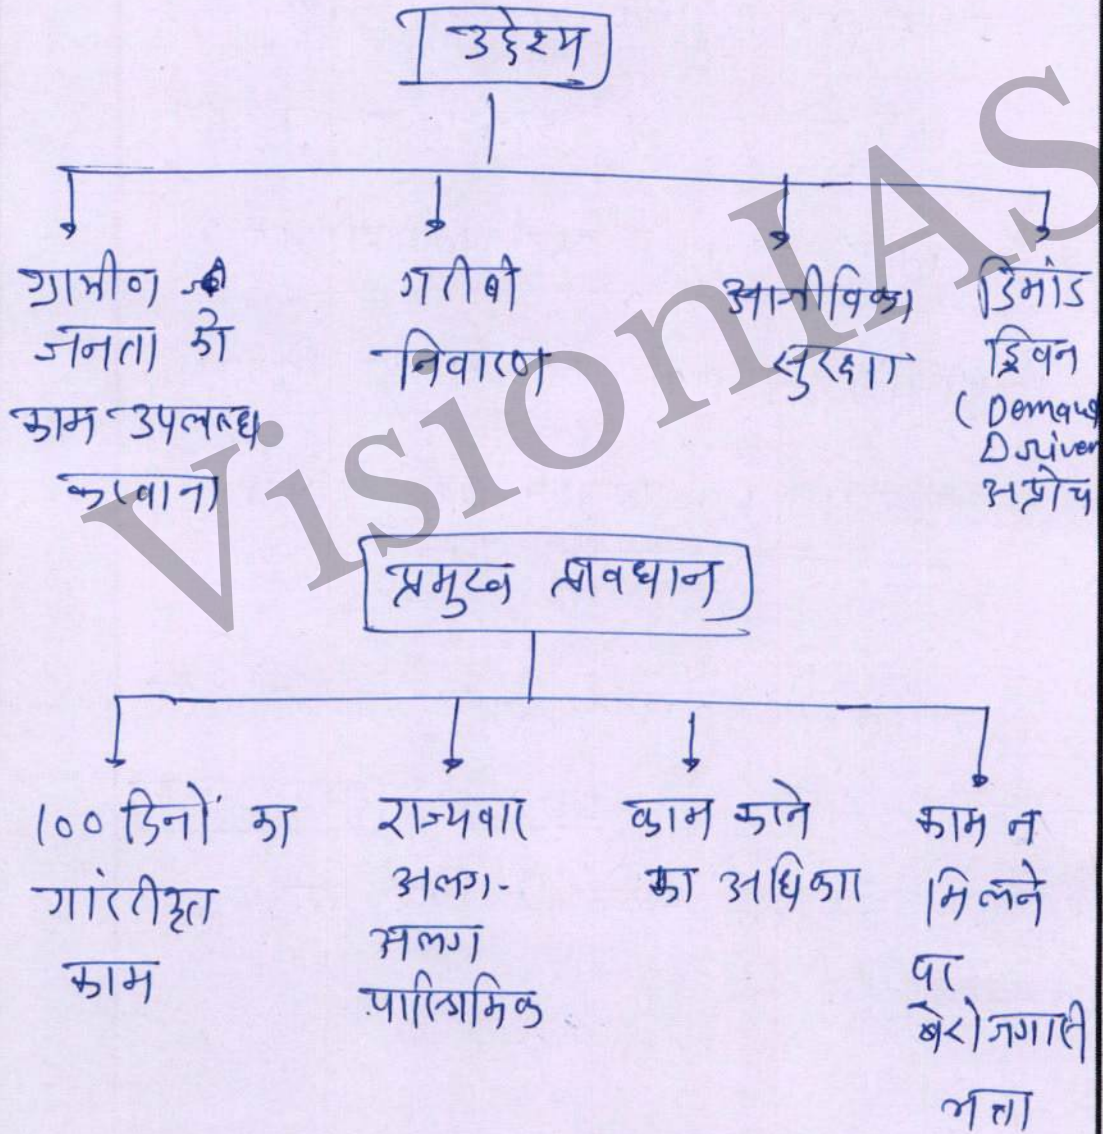 उद्देश्य
ग्रामीण
जनता को
काम उपलब्ध
करवाना
गरीबी
निवारण
आजीविका
सुरक्षा
डिमांड
ड्रिवन
(Demand
Driven
अप्रोच
प्रमुख प्रावधान
100 दिनों का
गारंटीकृत
काम
राज्यवार
अलग-
अलग
पारिश्रमिक
काम करने
का अधिकार
काम न
मिलने
पर
बेरोजगारी
भत्ता
VisionIAS